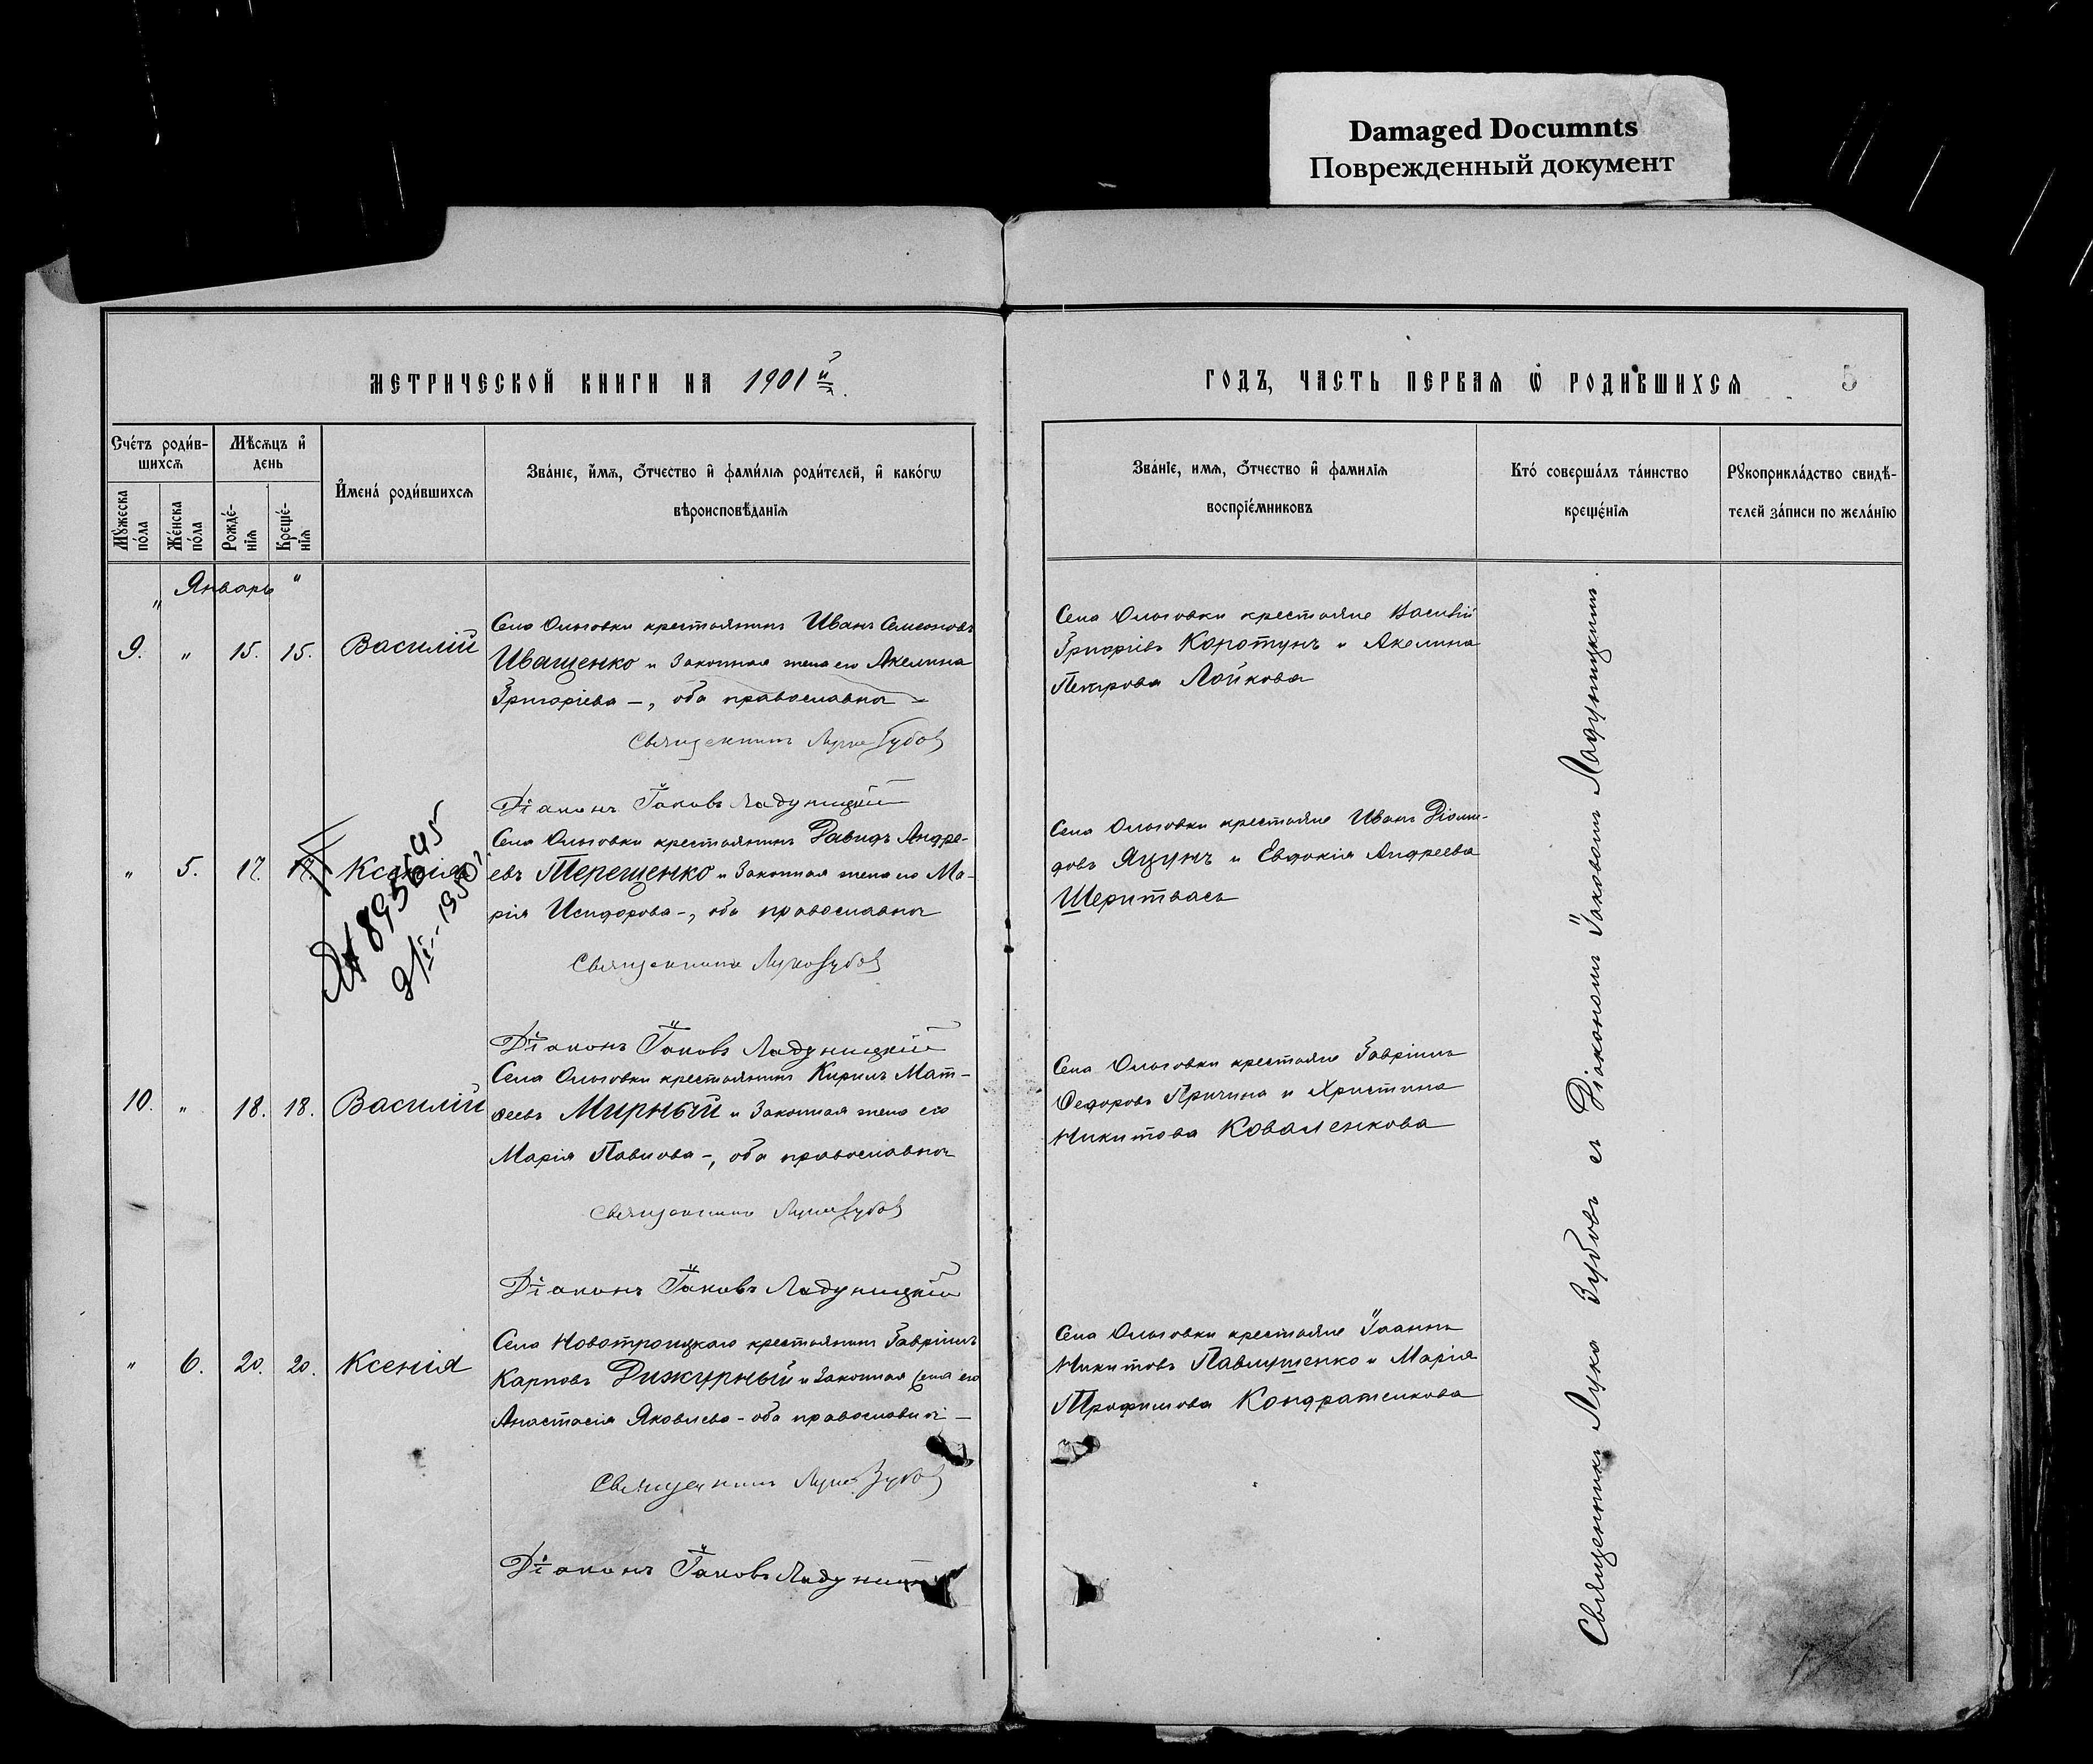 Damaged Documnts
Поврежденный документ
МЕТРИЧЕСКОЙ КНИГИ НА 1901й
ГОДЪ, ЧАСТЬ ПЕРВАЯ Ѡ РОДИВШИХСЯ
5
Счетъ родив-
шихся
Мѣсяцъ и
день
Мꙋжеска
пола
Женска
пола
Рожде-
нія
Креще-
нія
Имена родившихся
Званіе, имя, отчество и фамилія родителей, и какогѡ
вѣроисповѣданія
Званіе, имя, отчество и фамилія
воспріемниковъ
Кто совершалъ таинство
крещенія
Рꙋкоприкладство свидѣ-
телей записи по желанію
" Январь "
9. " 15. 15. Василій
Села Ольговки крестьянинъ Иванъ Семеоновъ
Иващенко и законная жена его Акелина
Григоріева -, оба православны
Священникъ Лука Зубов
Діаконъ Іаковъ Ладуницкій
Села Ольговки крестьяне Василій
Григоріевъ Коротунъ и Акелина
Петрова Лойкова
" 5. 17. 17. Ксенія
895645
9/I-1950
Села Ольговки крестьянинъ Давидъ Андре-
евъ Терещенко и законная жена его Ма-
рія Исидорова -, оба православны
Священникъ Лука Зубов
Діаконъ Іаковъ Ладуницкій
Села Ольговки крестьяне Иванъ Діоми-
довъ Яцунъ и Евдокія Андреева
10. " 18. 18. Василій
Села Ольговки крестьянинъ Кирилъ Мат-
ѳеевъ Мирный и законная жена его
Марія Павлова -, оба православны
Священникъ Лука Зубов
Діаконъ Іаковъ Ладуницкій
Села Ольговки крестьяне Гавріилъ
Ѳедоровъ Причина и Христина
Никитова Коваленкова
" 6. 20. 20. Ксенія
Села Новотроицкаго крестьянинъ Гавріилъ
Карповъ Дижурный и законная жена его
Анастасія Яковлева - оба православны -
Священникъ Лука Зубов
Діаконъ Іаковъ
Села Ольговки крестьяне Іоаннъ
Никитовъ Павлушенко и Марія
Трофимова Кондратенкова
Священникъ Лука Зубовъ съ Діакономъ Іаковомъ Ладуницкимъ.